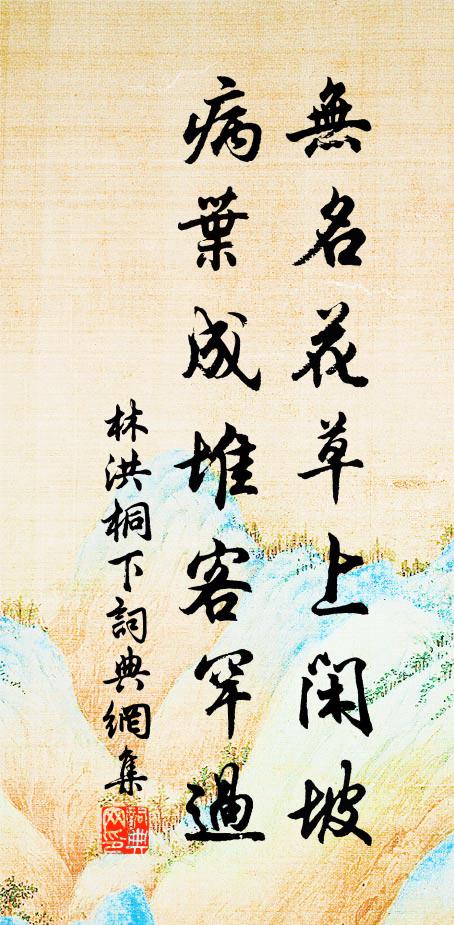 無名花草上閑坡
病葉成堆客罕過
林洪桐下詞典網集
詞典網印